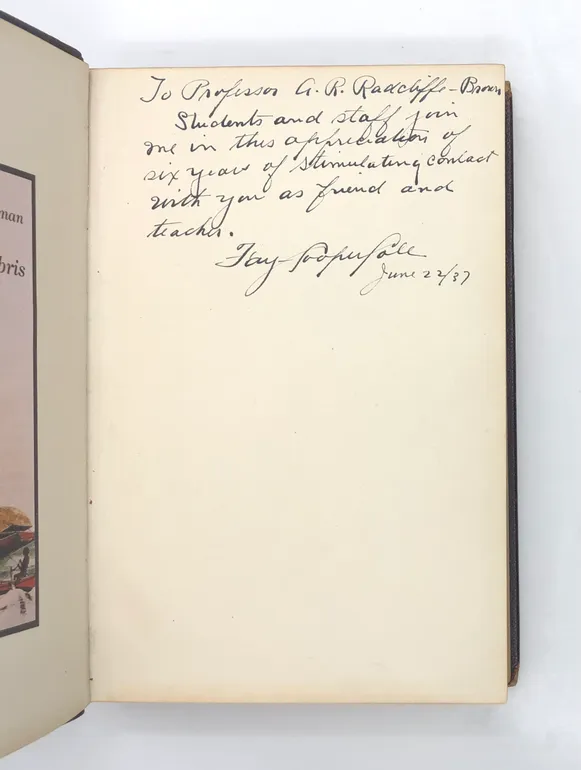 nan
bris
To Professor A. R. Radcliffe-Brown
Students and staff join
me in this appreciation of
six years of stimulating contact
with you as friend and
teacher.
Fay-Cooper Cole
June 22/37